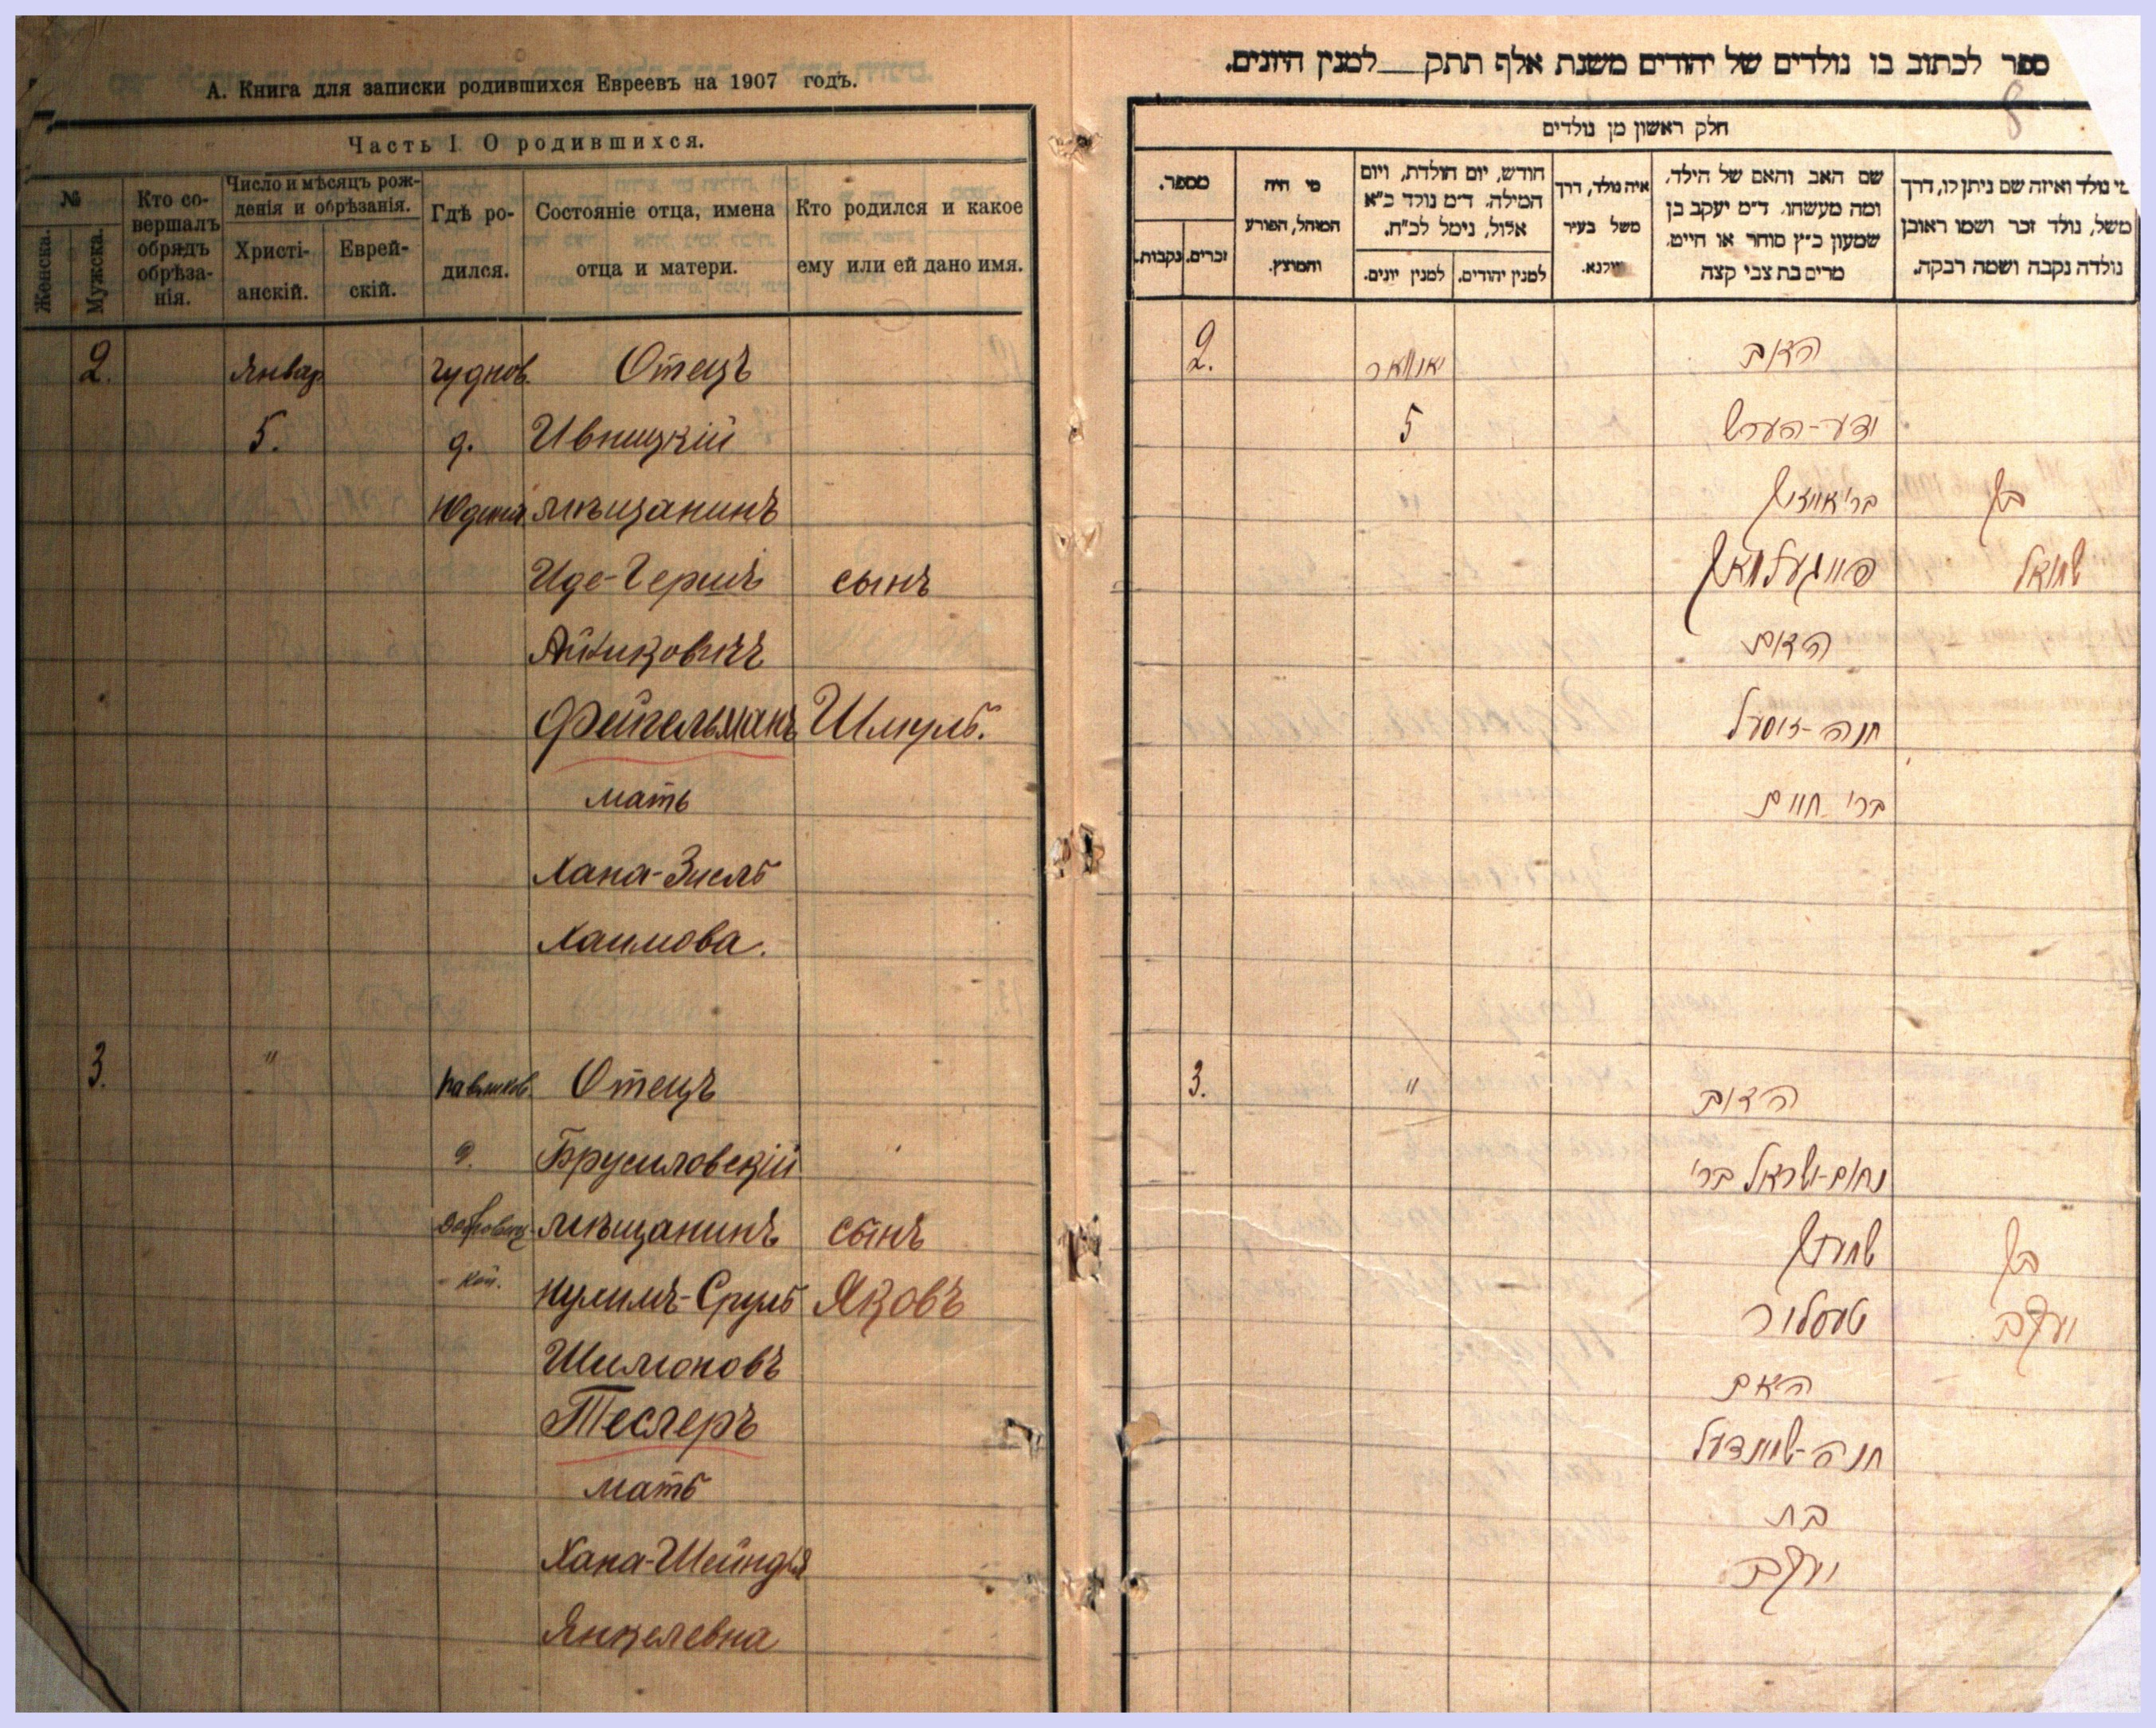 А. Книга для записки родившихся Евреевъ на 1907 годъ.
Часть I О родившихся.
№
Женска.
Мужска.
Кто со-
вершалъ
обрядъ
обрѣза-
нія.
Число и мѣсяцъ рож-
денія и обрѣзанія.
Христі-
анскій.
Еврей-
скій.
Гдѣ ро-
дился.
Состояніе отца, имена
отца и матери.
Кто родился и какое
ему или ей дано имя.
2. Январ Чуднов. Отецъ
5. д. Ивницкій
мѣщанинъ
Иде-Гершъ сынъ
Айзиковичъ
Фейгельманъ Шмуль.
мать
Хана-Зисль
Хаимова.
3. " Отецъ
д. Брусиловскій
мѣщанинъ сынъ
Нухимъ-Сруль Яковъ
Шимоновъ
Теслеръ
мать
Хана-Шейндля
Янкелевна
ספר לכתוב בו נולדים של יהודים משנת אלף תתק__למנין היונים.
8
חלק ראשון מן נולדים
מספר.
נקבות.
זכרים.
מי היה
המוהל, הפורע
והמוצץ.
חודש, יום הולדת, ויום
המילה. ד״מ נולד כ״א
אלול, נימל לכ״ח.
למנין יונים.
למנין יהודים.
איה נולד, דרך
משל בעיר
ווילנא.
שם האב והאם של הילד,
ומה מעשהו. ד״מ יעקב בן
שמעון כ״ץ סוחר או חייט,
מרים בת צבי קצה
מי נולד ואיזה שם ניתן לו, דרך
משל, נולד זכר ושמו ראובן
נולדה נקבה ושמה רבקה.
2. יאנוואר האב
5 יודע-הערש
בר׳ אייזיק בן
פייגעלמאן שמואל
האם
חנה-זיסעל
בר׳ חיים
3. " האב
נחום-ישראל בר׳
שמעון בן
טעסלער יעקב
האם
חנה-שיינדעל
בת
יעקב